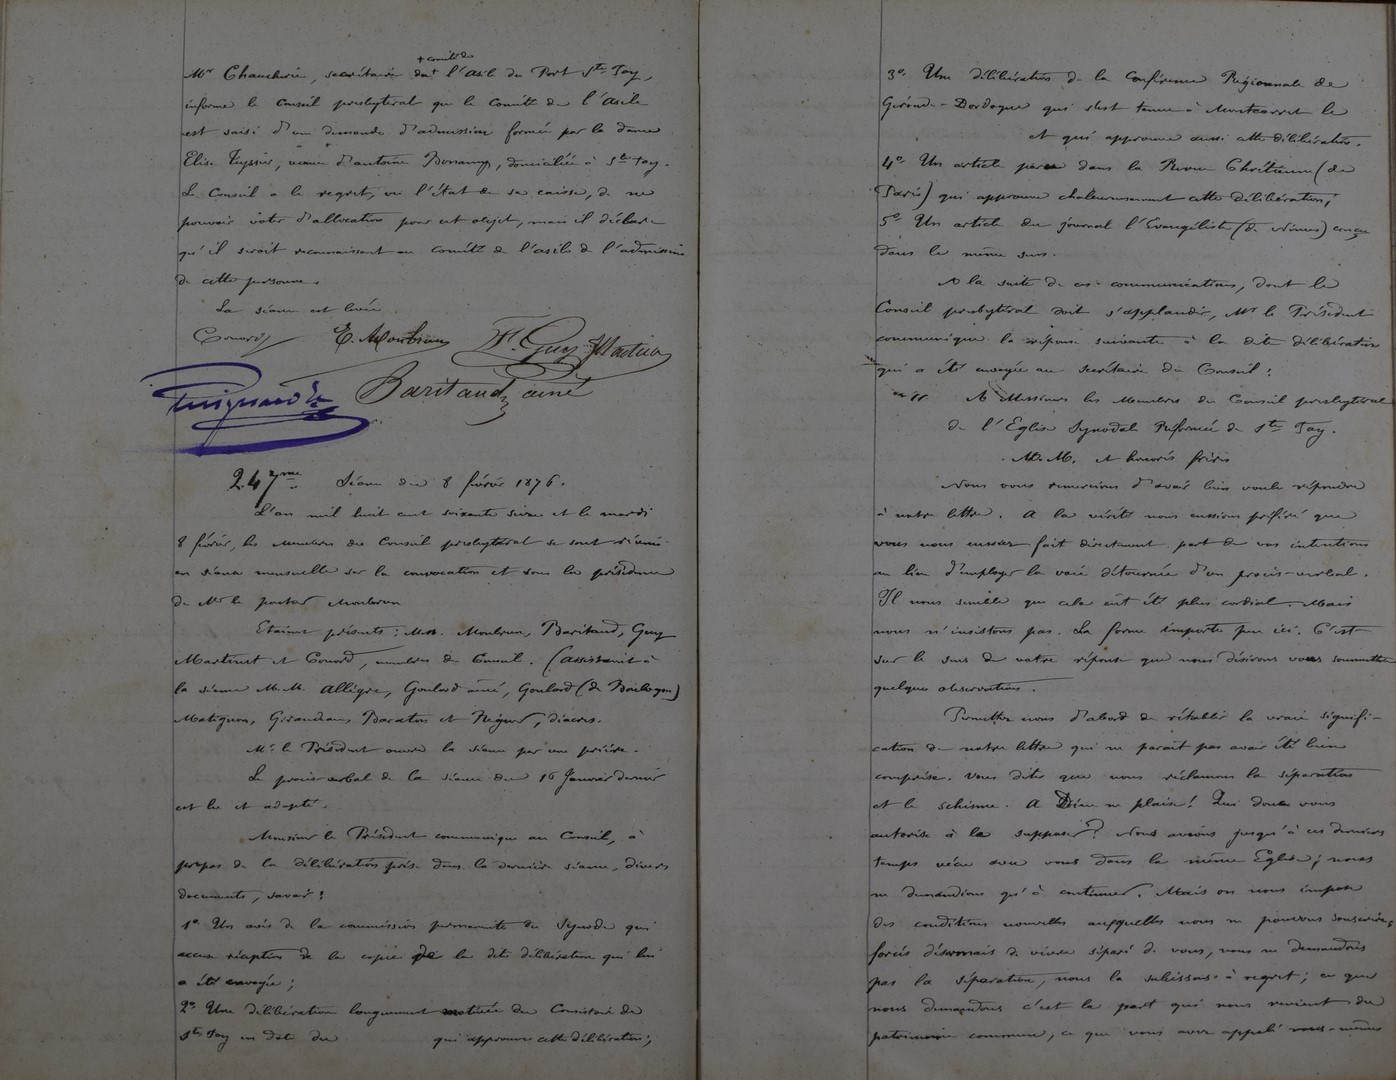 + comité de
Mr Chaucherie, secrétaire de l'asile du Port Ste Foy,
informe le Conseil presbytéral que le Comité de l'asile
est saisi d'une demande d'admission formée par la dame
Elise Teyssier, veuve d'antoine Bonnamy, domiciliée à Ste Foy.
Le Conseil a le regret, vu l'état de sa caisse, de ne
pouvoir voter d'allocation pour cet objet, mais il déclare
qu'il serait reconnaissant au comité de l'asile de l'admission
de cette personne.
La séance est levée
Gonord E. Moulinau F. Guy Martin
Guignard Baritaud ainé
247me Séance du 8 février 1876.
L'an mil huit cent soixante seize et le mardi
8 février, les membres du Conseil presbytéral se sont réunis
en séance mensuelle sur la convocation et sous la présidence
de Mr le pasteur
Etaient présents : MM. Baritaud, Guy
Martinet et Gonord, membres du Conseil. (assistaient à
la séance M.M. Allègre, Goulard ainé, Goulard (de Boulogne)
Matignon, Giraudeau, Baraton et Negner, diacres.
Mr le Président ouvre la séance par une prière.
Le procès verbal de la séance du 16 Janvier dernier
est lu et adopté.
Monsieur le Président communique au Conseil, à
propos de la délibération prise dans la dernière séance, divers
documents, savoir :
1° Un avis de la commission permanente du Synode qui
accuse réception de la copie de la dite délibération qui lui
a été envoyée ;
2° Une délibération longuement motivée du Consistoire de
Ste Foy en date du qui approuve cette délibération ;
3° Une délibération de la Conférence Régionnale de
Gironde-Dordogne qui s'est tenue à Montcarret le
et qui approuve aussi cette délibération.
4° Un article paru dans la Revue Chrétienne (de
Paris) qui approuve chaleureusement cette délibération ;
5° Un article du journal l'Evangéliste (de Nîmes) conçu
dans le même sens.
A la suite de ces communications, dont le
Conseil presbytéral doit s'applaudir, Mr le Président
communique la réponse suivante à la dite délibération
qui a été envoyée au secrétaire du Conseil :
"A Messieurs les Membres du Conseil presbytéral
de l'Eglise Synodale Réformée de Ste Foy.
M.M. et honorés frères
Nous vous remercions d'avoir bien voulu répondre
à notre lettre. A la vérité nous eussions préféré que
vous nous eussiez fait directement part de vos intentions
au lieu d'employer la voie détournée d'un procès-verbal.
Il nous semble que cela eût été plus cordial. Mais
nous n'insistons pas. La forme importe peu ici. C'est
sur le sens de votre réponse que nous désirons vous soumettre
quelques observations.
Permettez nous d'abord de rétablir la vraie signifi-
cation de notre lettre qui ne paraît pas avoir été bien
comprise. Vous dites que nous réclamons la séparation
et le schisme. A Dieu ne plaise ! Qui donc vous
autorise à le supposer ? Nous avions jusqu'à ces derniers
temps vécu avec vous dans la même Eglise ; nous
ne demandions qu'à continuer. Mais on nous impose
des conditions nouvelles auxquelles nous ne pouvons souscrire,
forcés désormais de vivre séparé de vous, nous ne demandons
pas la séparation, nous la subissons à regret ; ce que
nous demandons c'est la part qui nous revient du
patrimoine commun, ce que vous avez appelé vous-mêmes